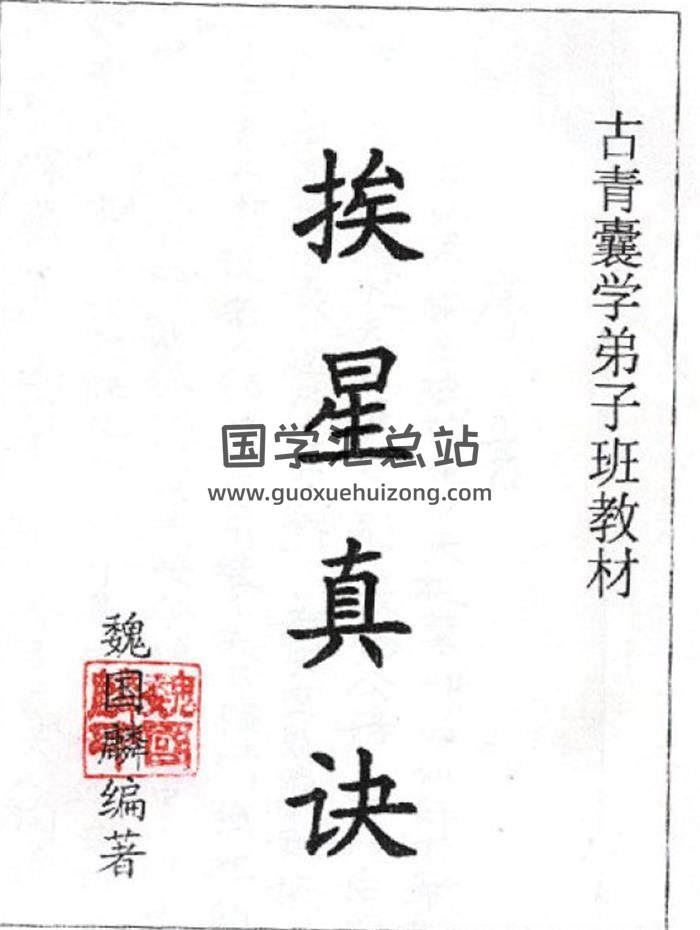 古青囊学弟子班教材
挨星真诀
国学汇总站
www.guoxuehuizong.com
魏国麟编著